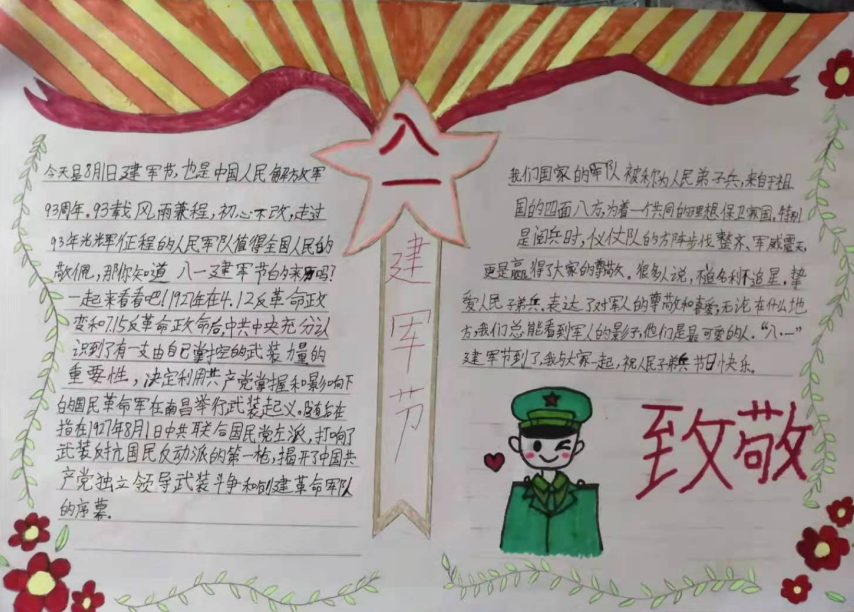 八一
建军节
今天是8月1日建军节,也是中国人民解放军
93周年.93载风雨兼程,初心不改,走过
93年光辉征程的人民军队值得全国人民的
敬佩,那你知道八一建军节的来历吗?
一起来看看吧!1927年在4.12反革命政
变和7.15反革命政命后,中共中央充分认
识到了有一支由自己掌控的武装力量的
重要性,决定利用共产党掌握和影响下
的国民革命军在南昌举行武装起义。随后在
指在1927年8月1日中共联合国民党左派,打响了
武装反抗国民反动派的第一枪,揭开了中国共
产党独立领导武装斗争和创建革命军队
的序幕。
我们国家的军队被称为人民弟子兵,来自于祖
国的四面八方,为着一个共同的理想保卫家国,特别
是阅兵时,仪仗队的方阵步伐整齐、军威震天,
更是赢得了大家的尊敬。很多人说,植名利不追星,挚
爱人民子弟兵,表达了对军人的尊敬和喜爱;无论在什么地
方,我们总能看到军人的影子,他们是最可爱的人。“八·一”
建军节到了,我与大家一起,祝人民子弟兵节日快乐.
致敬